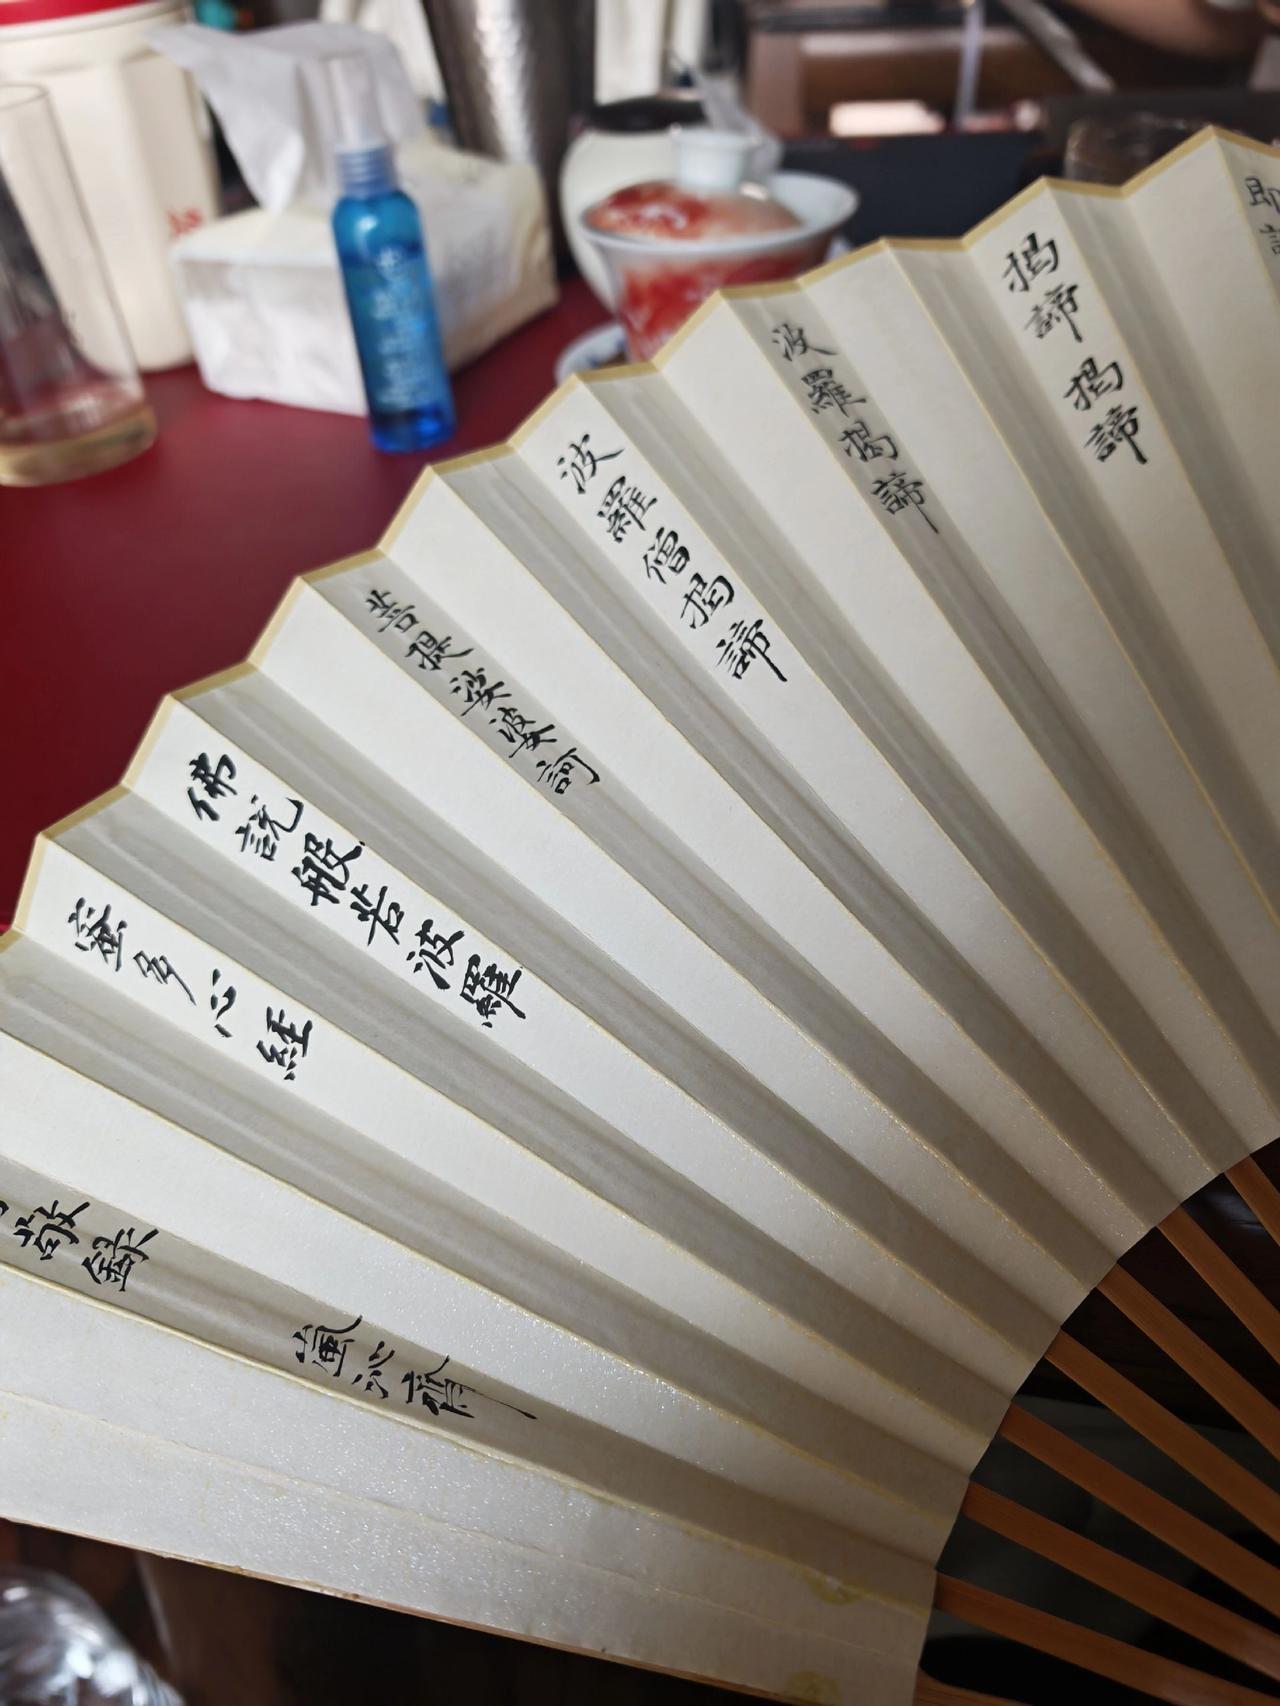 即
揭諦揭諦
波羅揭諦
波羅僧揭諦
菩提娑婆訶
佛說般若波羅
蜜多心經
敬錄
齋